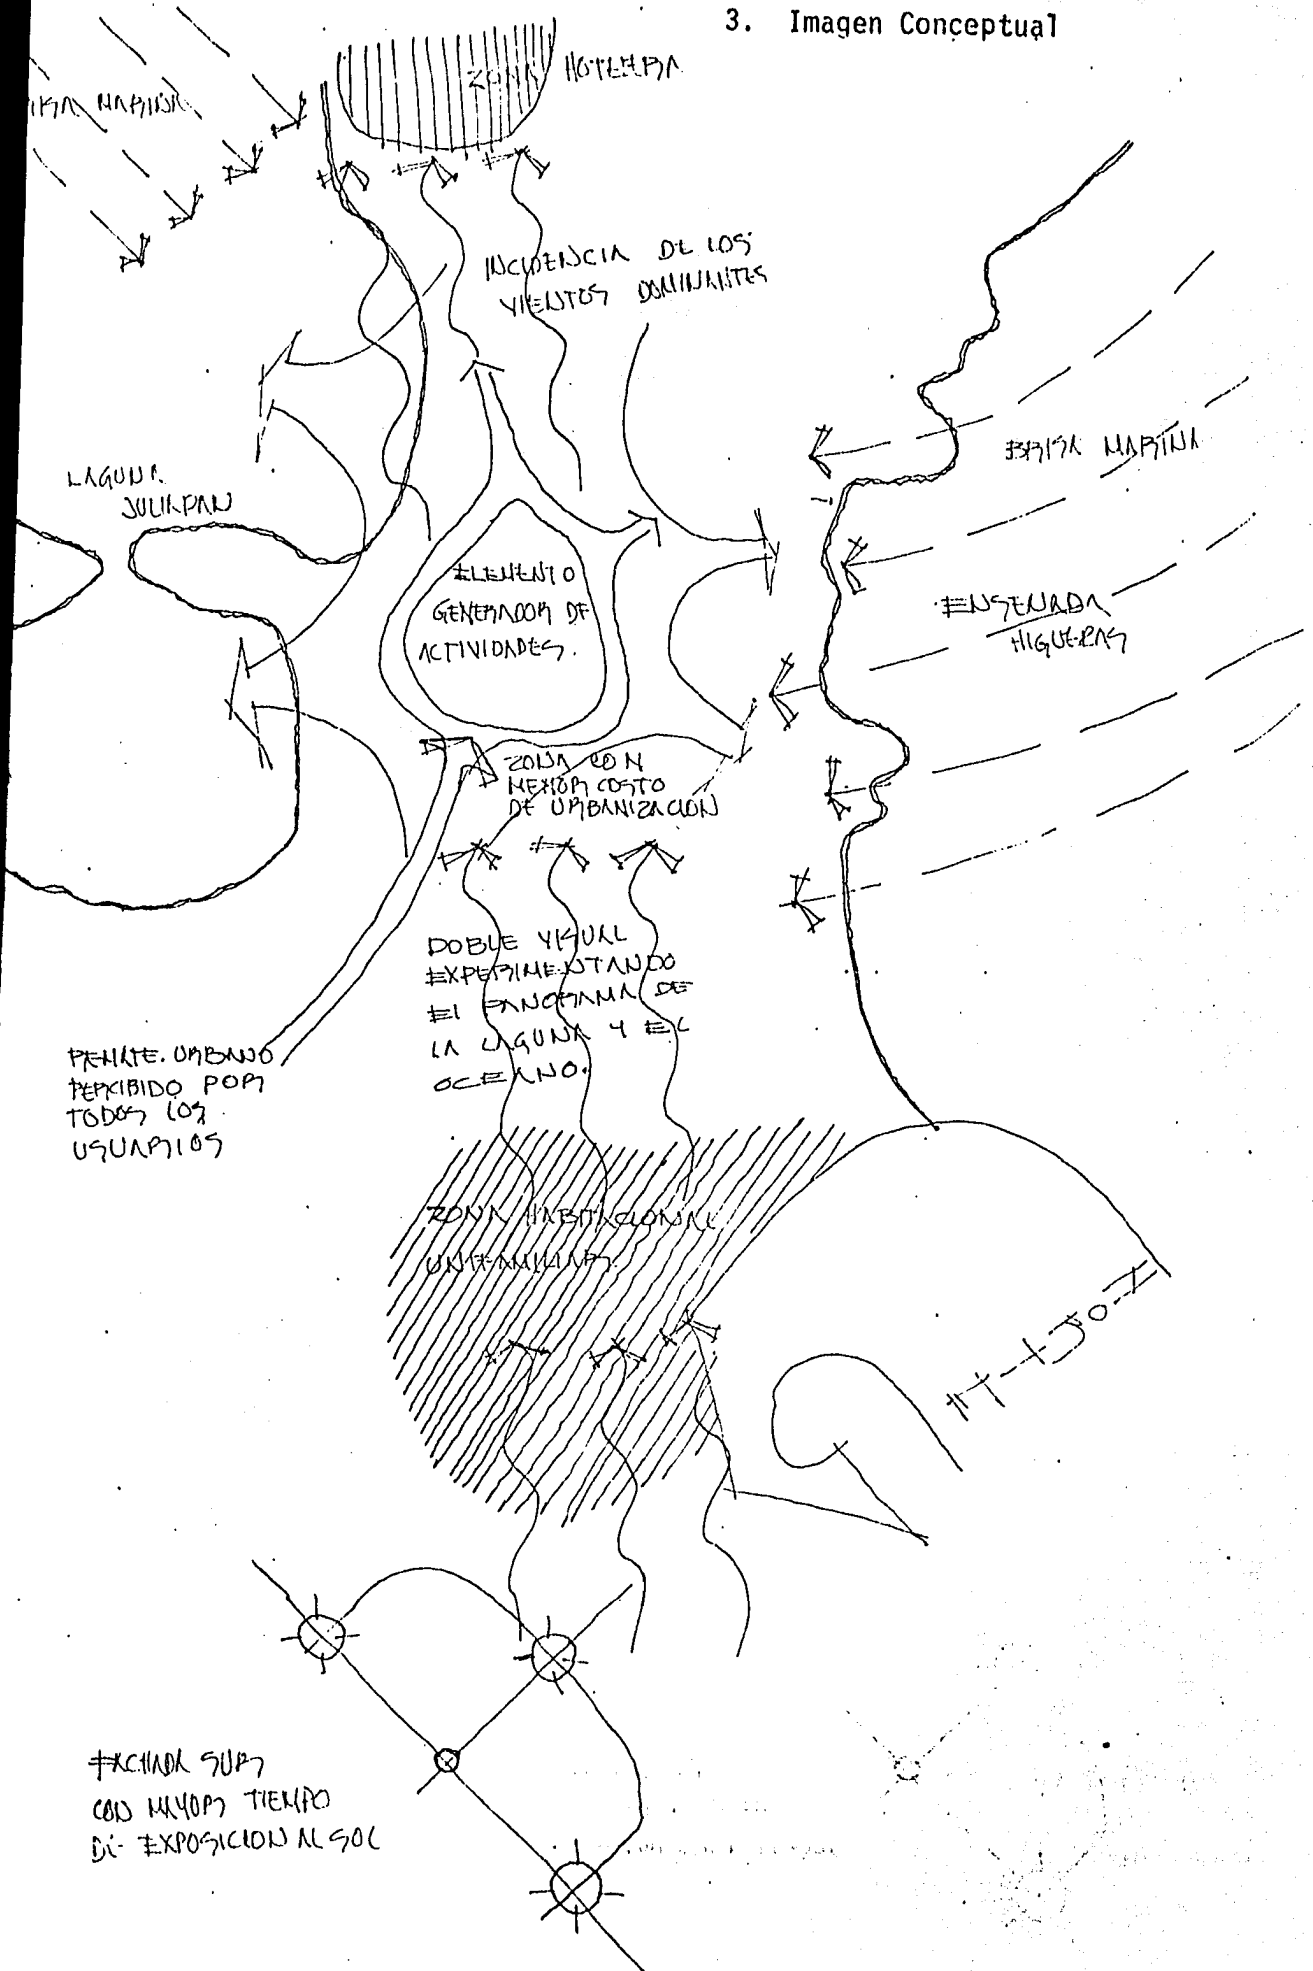 3. Imagen Conceptual
ZONA HOTELERA
MARINA
INCIDENCIA DE LOS
VIENTOS DOMINANTES
BRISA MARINA
LAGUNA
JULIAPAN
ELEMENTO
GENERADOR DE
ACTIVIDADES.
ENSENADA
HIGUERAS
ZONA CON
MENOR COSTO
DE URBANIZACION
DOBLE VISUAL
EXPERIMENTANDO
El PANORAMA DE
LA LAGUNA Y EL
OCEANO.
REMATE. URBANO
PERCIBIDO POR
TODOS LOS
USUARIOS
ZONA HABITACIONAL
UNIFAMILIAR.
FACHADA SUR
CON MAYOR TIEMPO
DE EXPOSICION AL SOL